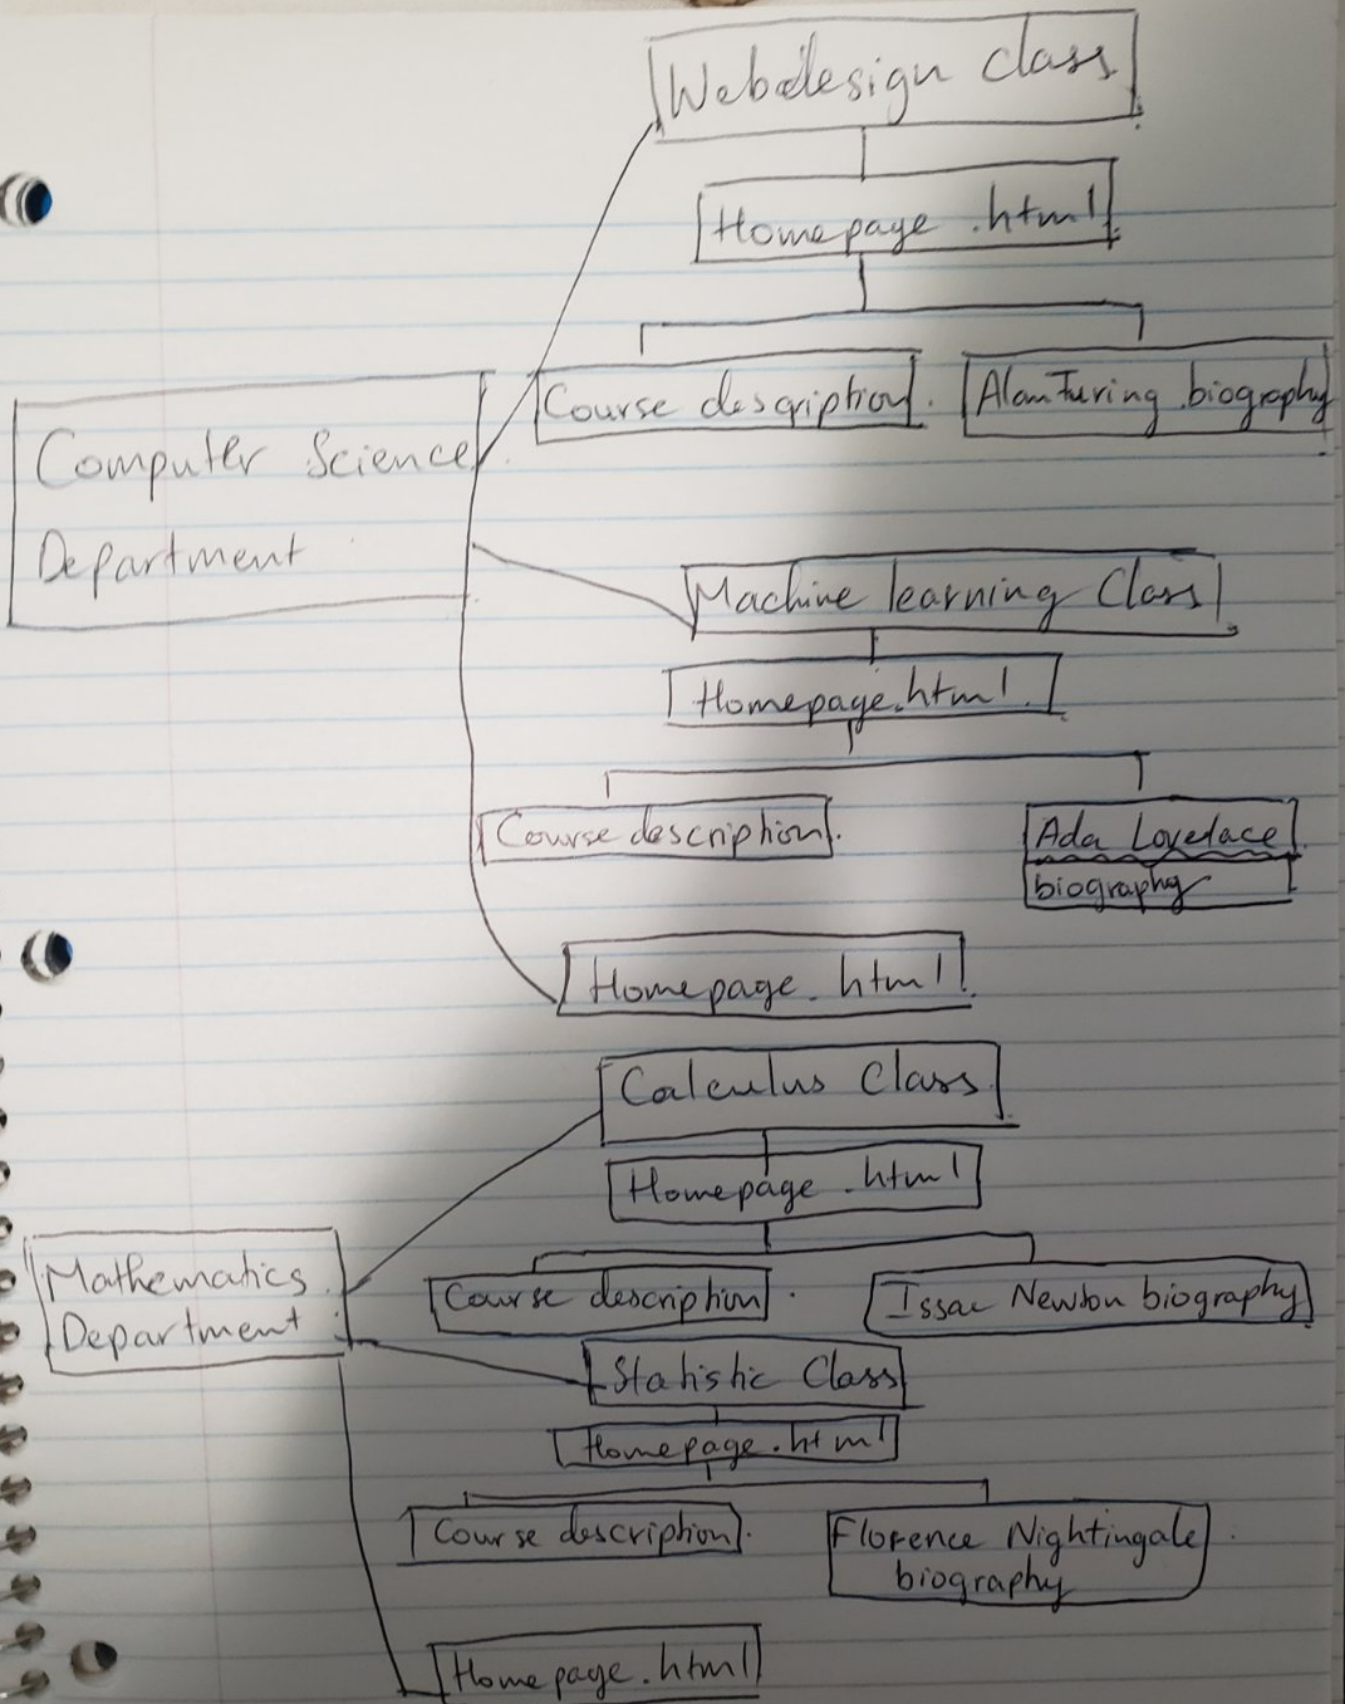 Webdesign class
Homepage .html
Course description.
Alan Turing biography
Computer Science
Department
Machine learning Class
Homepage.html.
Course description.
Ada Lovelace
biography
Homepage. html.
Calculus Class
Homepage .html
Mathematics
Department
Course description.
Issac Newton biography
Statistic Class
Homepage.html
Course description.
Florence Nightingale
biography
Homepage.html